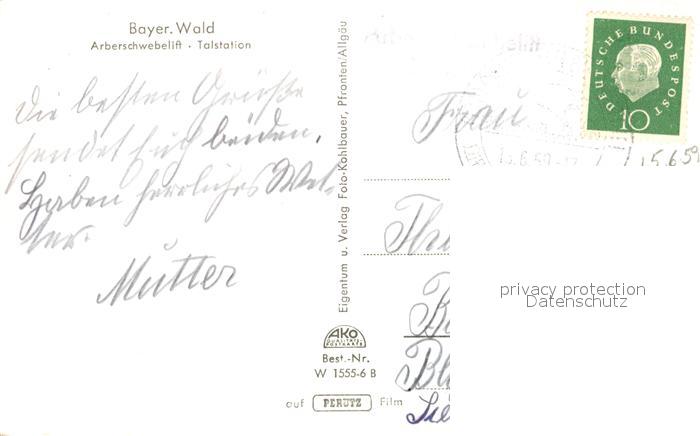 Bayer. Wald
Arberschwebelift • Talstation
Die besten Grüße
sendet Euch beiden.
Haben herrliches Wet-
ter.
Mutter
Eigentum u. Verlag Foto-Kohlbauer, Pfronten/Allgäu
AKO
QUALITÄTS-
POSTKARTE
Best.-Nr.
W 1555-6 B
auf PERUTZ Film
DEUTSCHE BUNDESPOST
10
15.6.59
Frau
privacy protection
Datenschutz